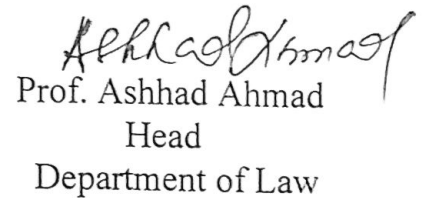 Ashhad Ahmad
Prof. Ashhad Ahmad
Head
Department of Law